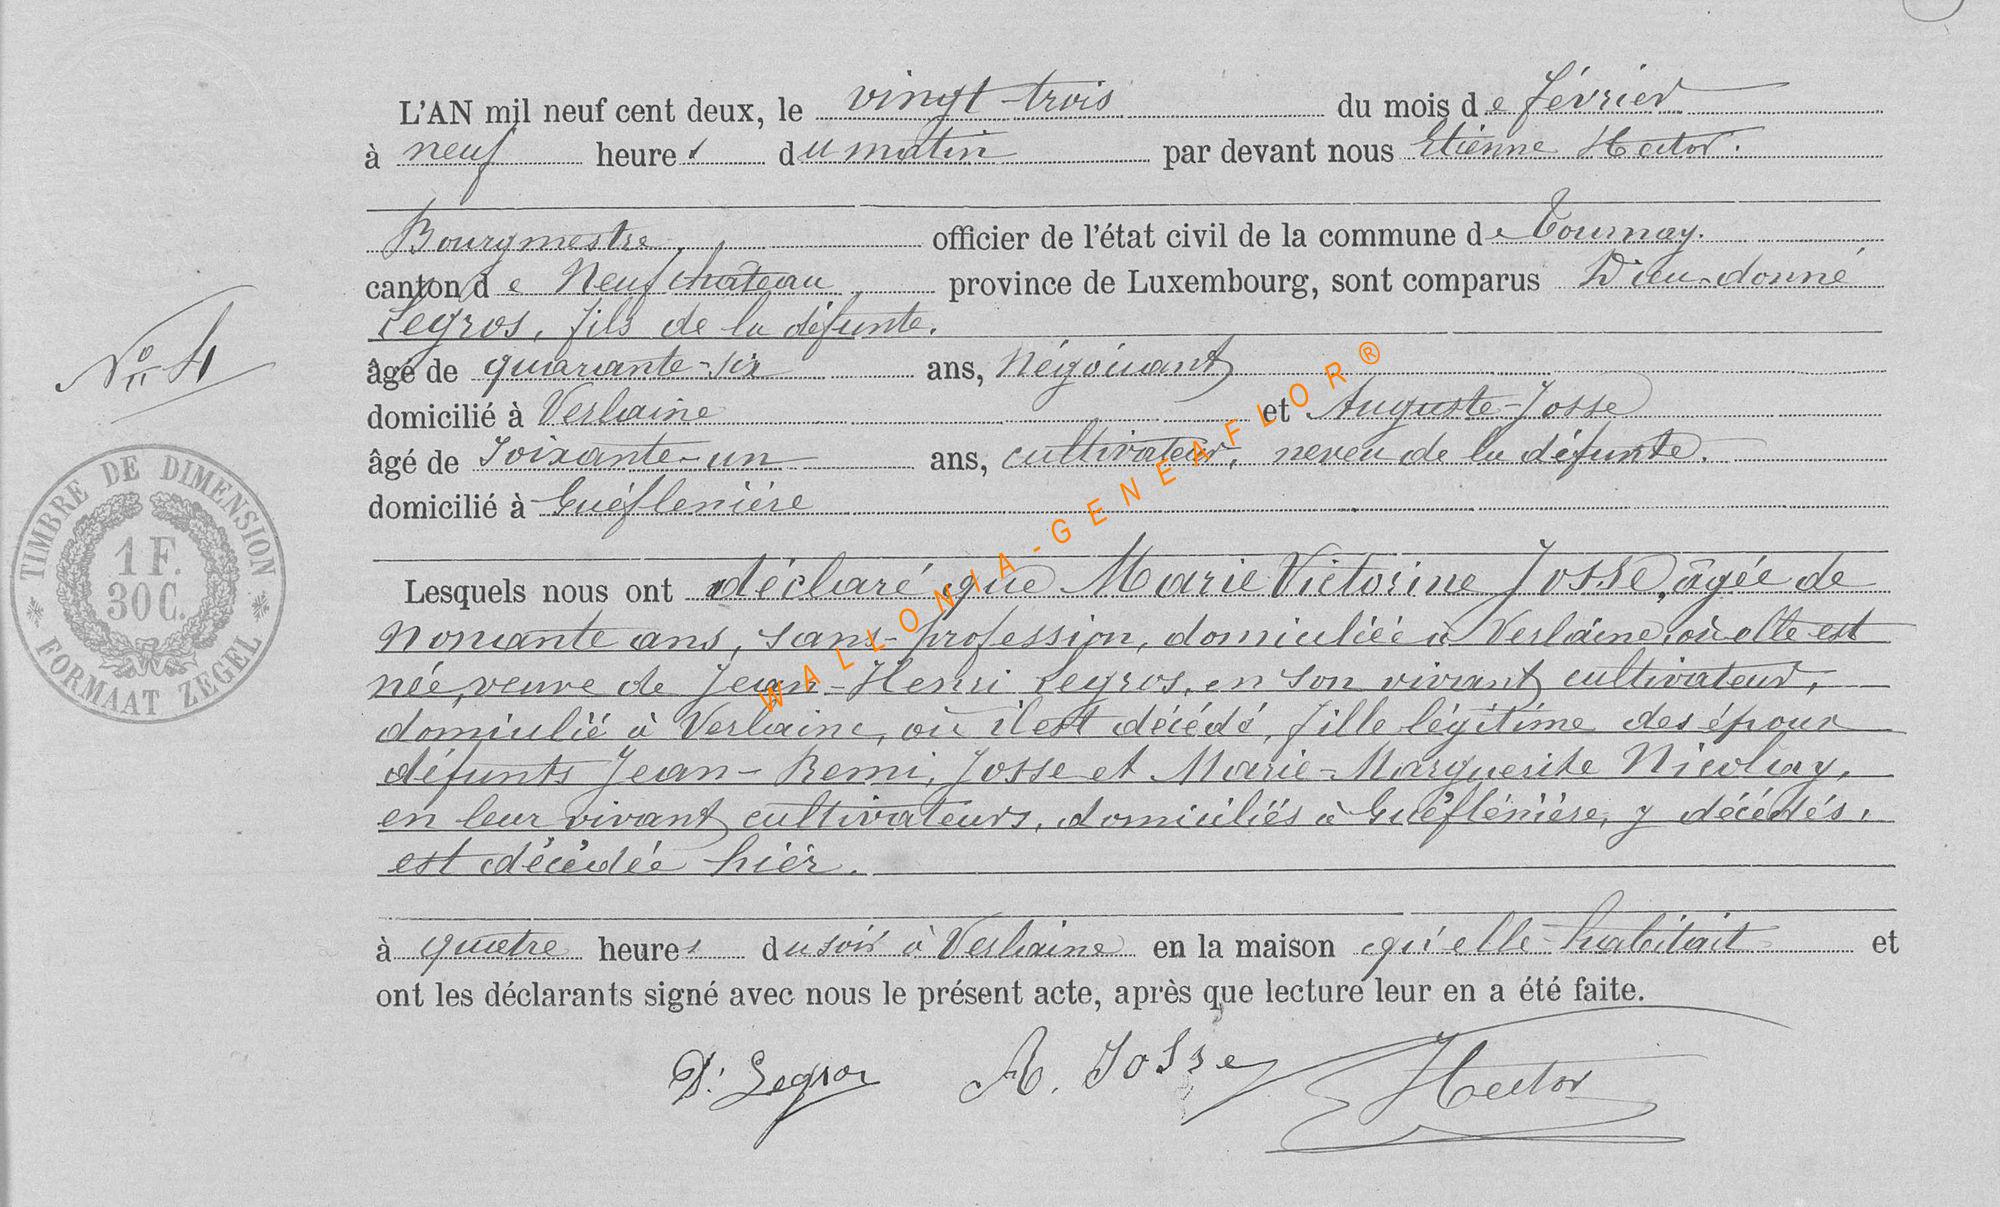 L'AN mil neuf cent deux, le vingt-trois du mois de février
à neuf heures du matin par devant nous Etienne Hector.
Bourgmestre, officier de l'état civil de la commune de Tournay.
canton de Neufchateau province de Luxembourg, sont comparus Dieu-donné
Legros, fils de la défunte.
âgé de quarante-six ans, Négociant
domicilié à Verlaine et Auguste Josse
âgé de soixante-un ans, cultivateur, neveu de la défunte.
domicilié à Gueflenière
Lesquels nous ont déclaré que Marie Victorine Josse, âgée de
nonante ans, sans profession, domiciliée à Verlaine, où elle est
née, veuve de Jean-Henri Legros, en son vivant cultivateur,
domicilié à Verlaine, où il est décédé, fille légitime des époux
défunts Jean-Remi, Josse et Marie-Marguerite Nicolay,
en leur vivant cultivateurs, domiciliés à Gueflénière, y décédés,
est décédée hier.
à quatre heures du soir à Verlaine en la maison qu'elle habitait et
ont les déclarants signé avec nous le présent acte, après que lecture leur en a été faite.
D. Legros A. Josse Hector
No 4
TIMBRE DE DIMENSION
1 F.
30 C.
FORMAAT ZEGEL
WALLONIA-GENEAFLOR®